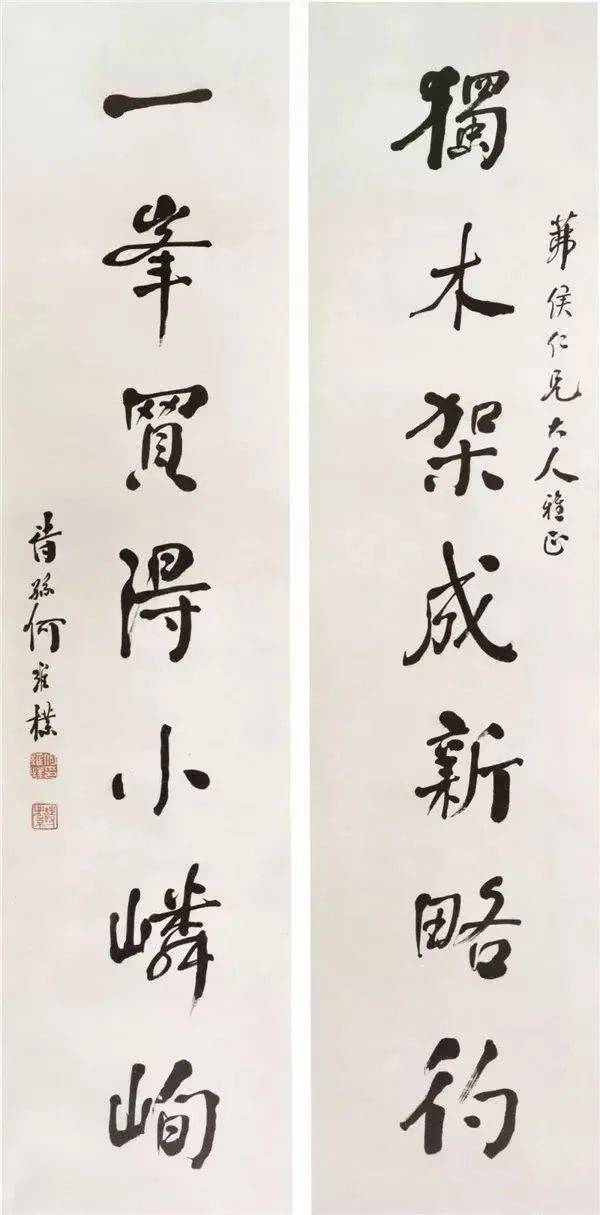 獨木架成新略彴
茀侯仁兄大人雅正
一峯買得小嶙峋
詩孫何維樸